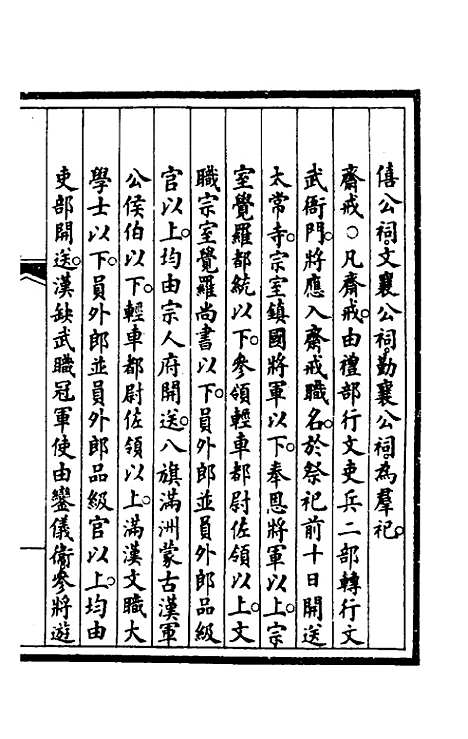 僖公祠。文襄公祠。勤襄公祠。為羣祀。
齋戒○凡齋戒。由禮部行文吏兵二部轉行文
武衙門。將應入齋戒職名。於祭祀前十日開送
太常寺。宗室鎮國將軍以下。奉恩將軍以上。宗
室覺羅都統以下。參領輕車都尉佐領以上。文
職宗室覺羅尚書以下。員外郎並員外郎品級
官以上。均由宗人府開送。八旗滿洲蒙古漢軍
公侯伯以下。輕車都尉佐領以上。滿漢文職大
學士以下。員外郎並員外郎品級官以上。均由
吏部開送。漢缺武職冠軍使由鑾儀衞。參將遊